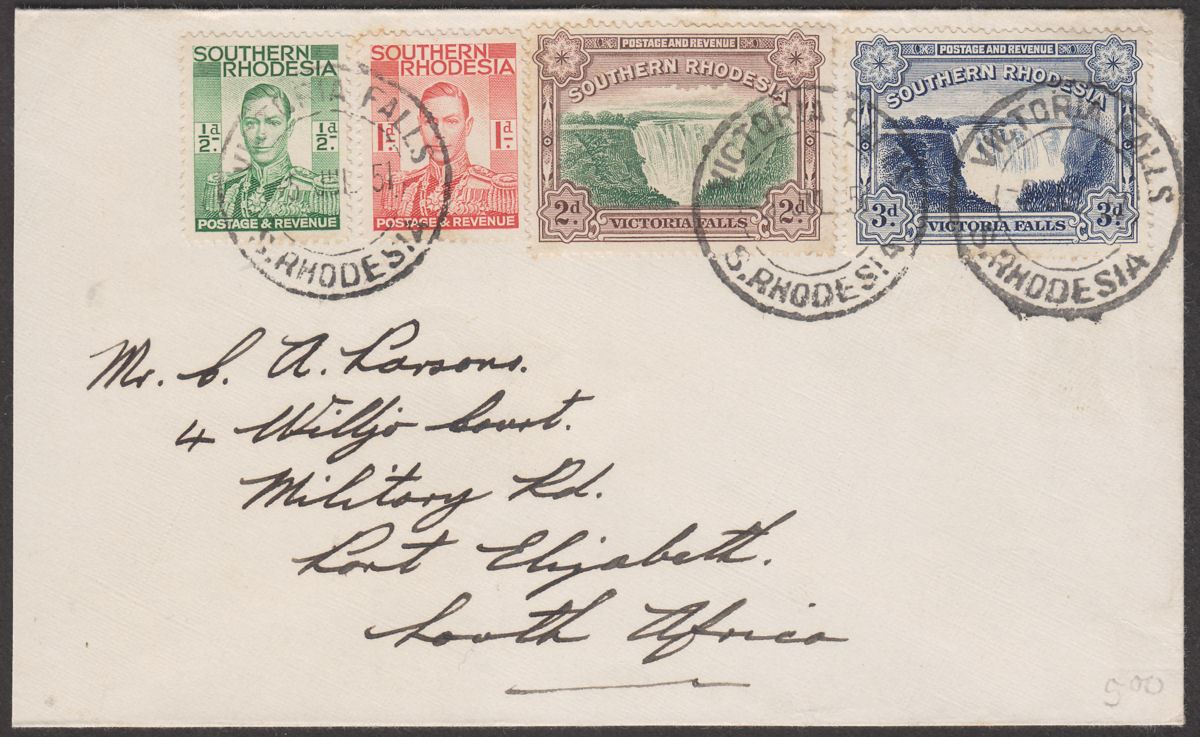 SOUTHERN RHODESIA
½d ½d
POSTAGE & REVENUE
SOUTHERN RHODESIA
1d 1d
POSTAGE & REVENUE
POSTAGE AND REVENUE
SOUTHERN RHODESIA
2d 2d
VICTORIA FALLS
POSTAGE AND REVENUE
SOUTHERN RHODESIA
3d 3d
VICTORIA FALLS
VICTORIA FALLS
51
S. RHODESIA
VICTORIA
S. RHODESIA
VICTORIA FALLS
S. RHODESIA
Mr. C. A. Parsons.
4 Willjo Court.
Military Rd.
Port Elizabeth.
South Africa
500